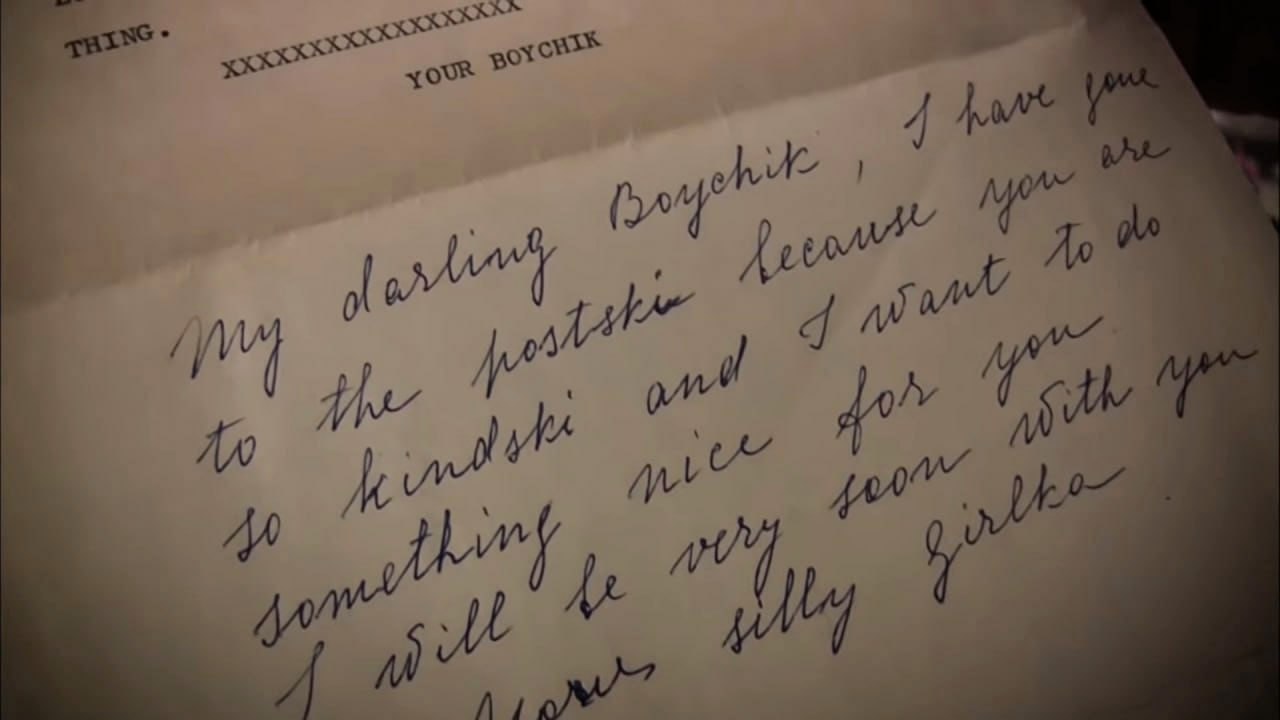 THING.
XXXXXXXXXXXXXXXXXX
YOUR BOYCHIK
My darling Boychik, I have gone
to the postski because you are
so kindski and I want to do
something nice for you
I will be very soon with you
Yours silly Girlka